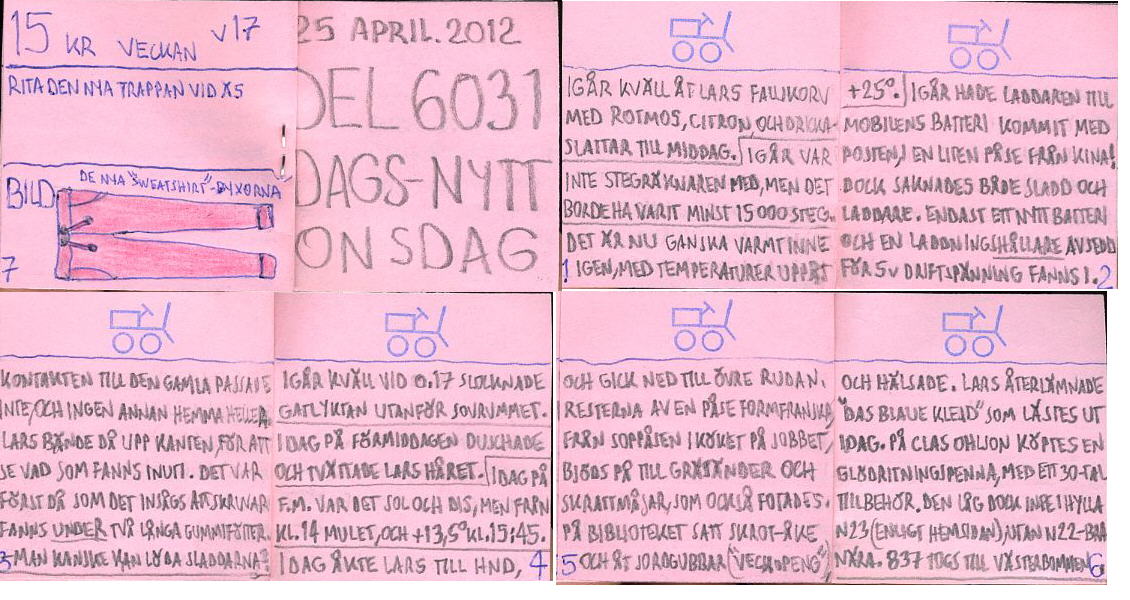 15 KR VECKAN V17
RITA DEN NYA TRAPPAN VID ÄS
BILD
DE NYA "SWEATSHIRT"-BYXORNA
7
25 APRIL.2012
DEL 6031
DAGS-NYTT
ONSDAG
IGÅR KVÄLL ÅT LARS FALUKORV
MED ROTMOS, CITRON, OCH DRICKA-
SLATTAR TILL MIDDAG. IGÅR VAR
INTE STEGRÄKNAREN MED, MEN DET
BORDE HA VARIT MINST 15000 STEG.
DET ÄR NU GANSKA VARMT INNE
1 IGEN, MED TEMPERATURER UPPÅT
+25°. IGÅR HADE LADDAREN TILL
MOBILENS BATTERI KOMMIT MED
POSTEN, I EN LITEN PÅSE FRÅN KINA!
DOCK SAKNADES BÅDE SLADD OCH
LADDARE. ENDAST ETT NYTT BATTERI
OCH EN LADDNINGSHÅLLARE AVSEDD
FÖR 5V DRIFTSPÄNNING FANNS I. 2
KONTAKTEN TILL DEN GAMLA PASSADE
INTE, OCH INGEN ANNAN HEMMA HELLER.
LARS BÄNDE DÅ UPP KANTEN, FÖR ATT
SE VAD SOM FANNS INUTI. DET VAR
FÖRST DÅ SOM DET INSÅGS ATT SKRUVAR
FANNS UNDER TVÅ LÅNGA GUMMIFÖTTER.
3 MAN KANSKE KAN LÖDA SLADDARNA?
IGÅR KVÄLL VID 0.17 SLOCKNADE
GATLYKTAN UTANFÖR SOVRUMMET.
IDAG PÅ FÖRMIDDAGEN DUSCHADE
OCH TVÄTTADE LARS HÅRET. IDAG PÅ
F.M. VAR DET SOL OCH DIS, MEN FRÅN
KL.14 MULET, OCH +13,5° KL.15:45.
IDAG ÅKTE LARS TILL HND, 4
OCH GICK NED TILL ÖVRE RUDAN.
RESTERNA AV EN PÅSE FORMFRANSKA,
FRÅN SOPPÅSEN I KÖKET PÅ JOBBET,
BJÖDS PÅ TILL GRÄSÄNDER OCH
SKRATTMÅSAR, SOM OCKSÅ FOTADES.
PÅ BIBLIOTEKET SATT SKROT-ÅKE
5 OCH ÅT JORDGUBBAR ("VECKOPENG")
OCH HÄLSADE. LARS ÅTERLÄMNADE
"DAS BLAUE KLEID" SOM LÄSTES UT
IDAG. PÅ CLAS OHLSON KÖPTES EN
GLÖDRITNINGSPENNA, MED ETT 30-TAL
TILLBEHÖR. DEN LÅG DOCK INTE I HYLLA
N23 (ENLIGT HEMSIDAN) UTAN N22-BRA
NÄRA. 837 TOGS TILL VÄSTERBOMMEN 6